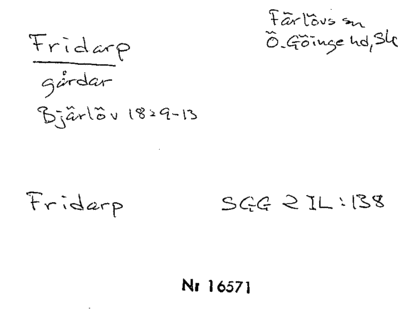 Fridarp
Färlövs sn
Ö. Göinge hd, Sk
gårdar
Bjärlöv 1829-13
Fridarp SGG 2 IL:138
Nr 16571